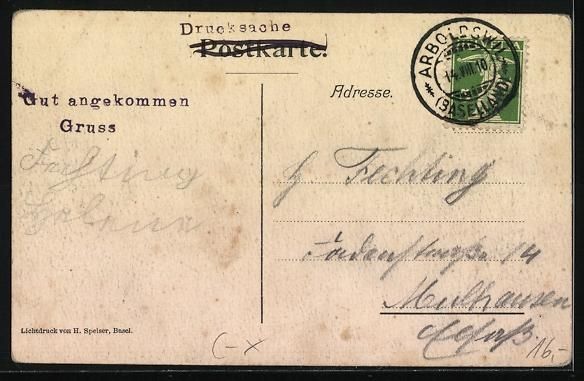 Drucksache
Postkarte.
Adresse.
ARBOLDSWIL
14.VIII.10
(BASELLAND)
Gut angekommen
Gruss
Fechting
Helene
H Fechting
14
Mülhausen
Elsaß
Lichtdruck von H. Speiser, Basel.
C-x
16.-